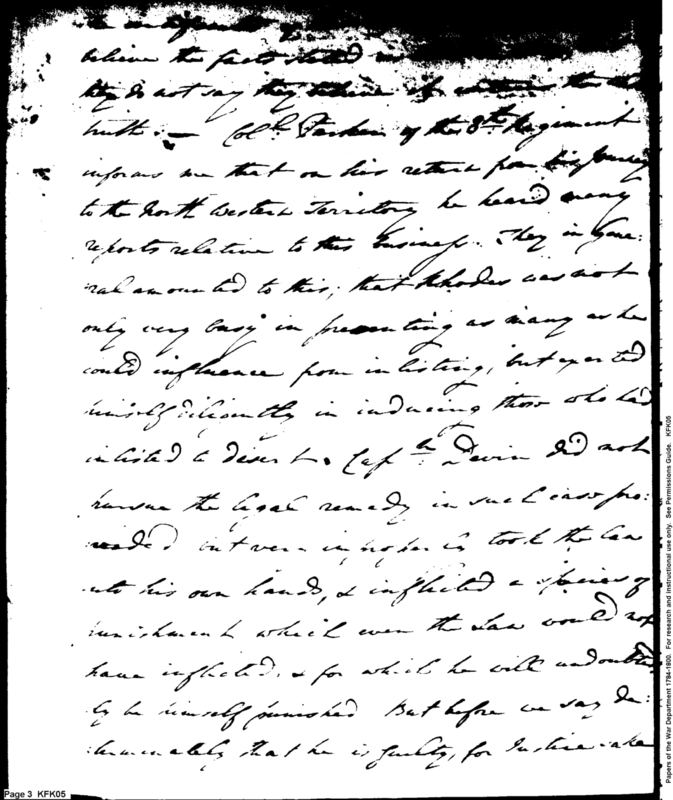 believe the facts stated
they do not say they believe
truth. — Colo. Parker of the 8th Regiment
informs me that on his return from his Journey
to the North Western Territory he heard many
reports relative to this business. They in Gene:
ral amounted to this; that Rhodes was not
only very busy in preventing as many as he
could influence from inlisting, but exerted
himself diligently in inducing those who had
inlisted to desert. Capt. Devin did not
pursue the legal remedy in such case pro:
vided but very improperly took the law
into his own hands, & inflicted a species of
punishment which even the Law would not
have inflicted. & for which he will undoubted
ly be himself punished But before we say de:
terminately that he is guilty, for Justice sake
Page 3 KFK05
Papers of the War Department 1784-1800. For research and instructional use only. See Permissions Guide. KFK05